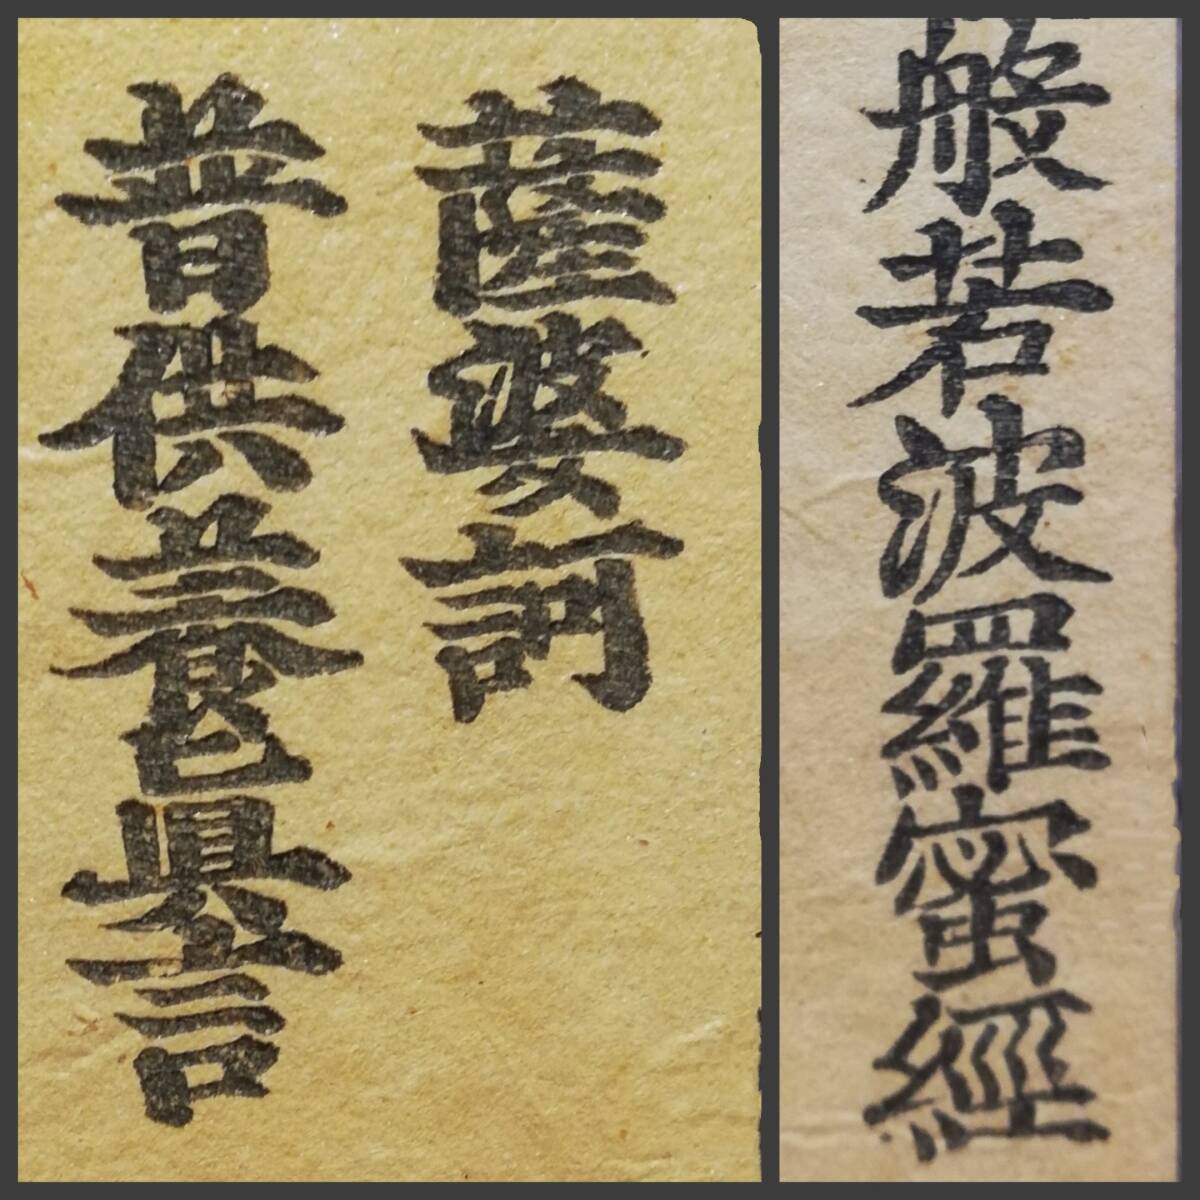 般若波羅蜜經
薩婆訶
普供養真言